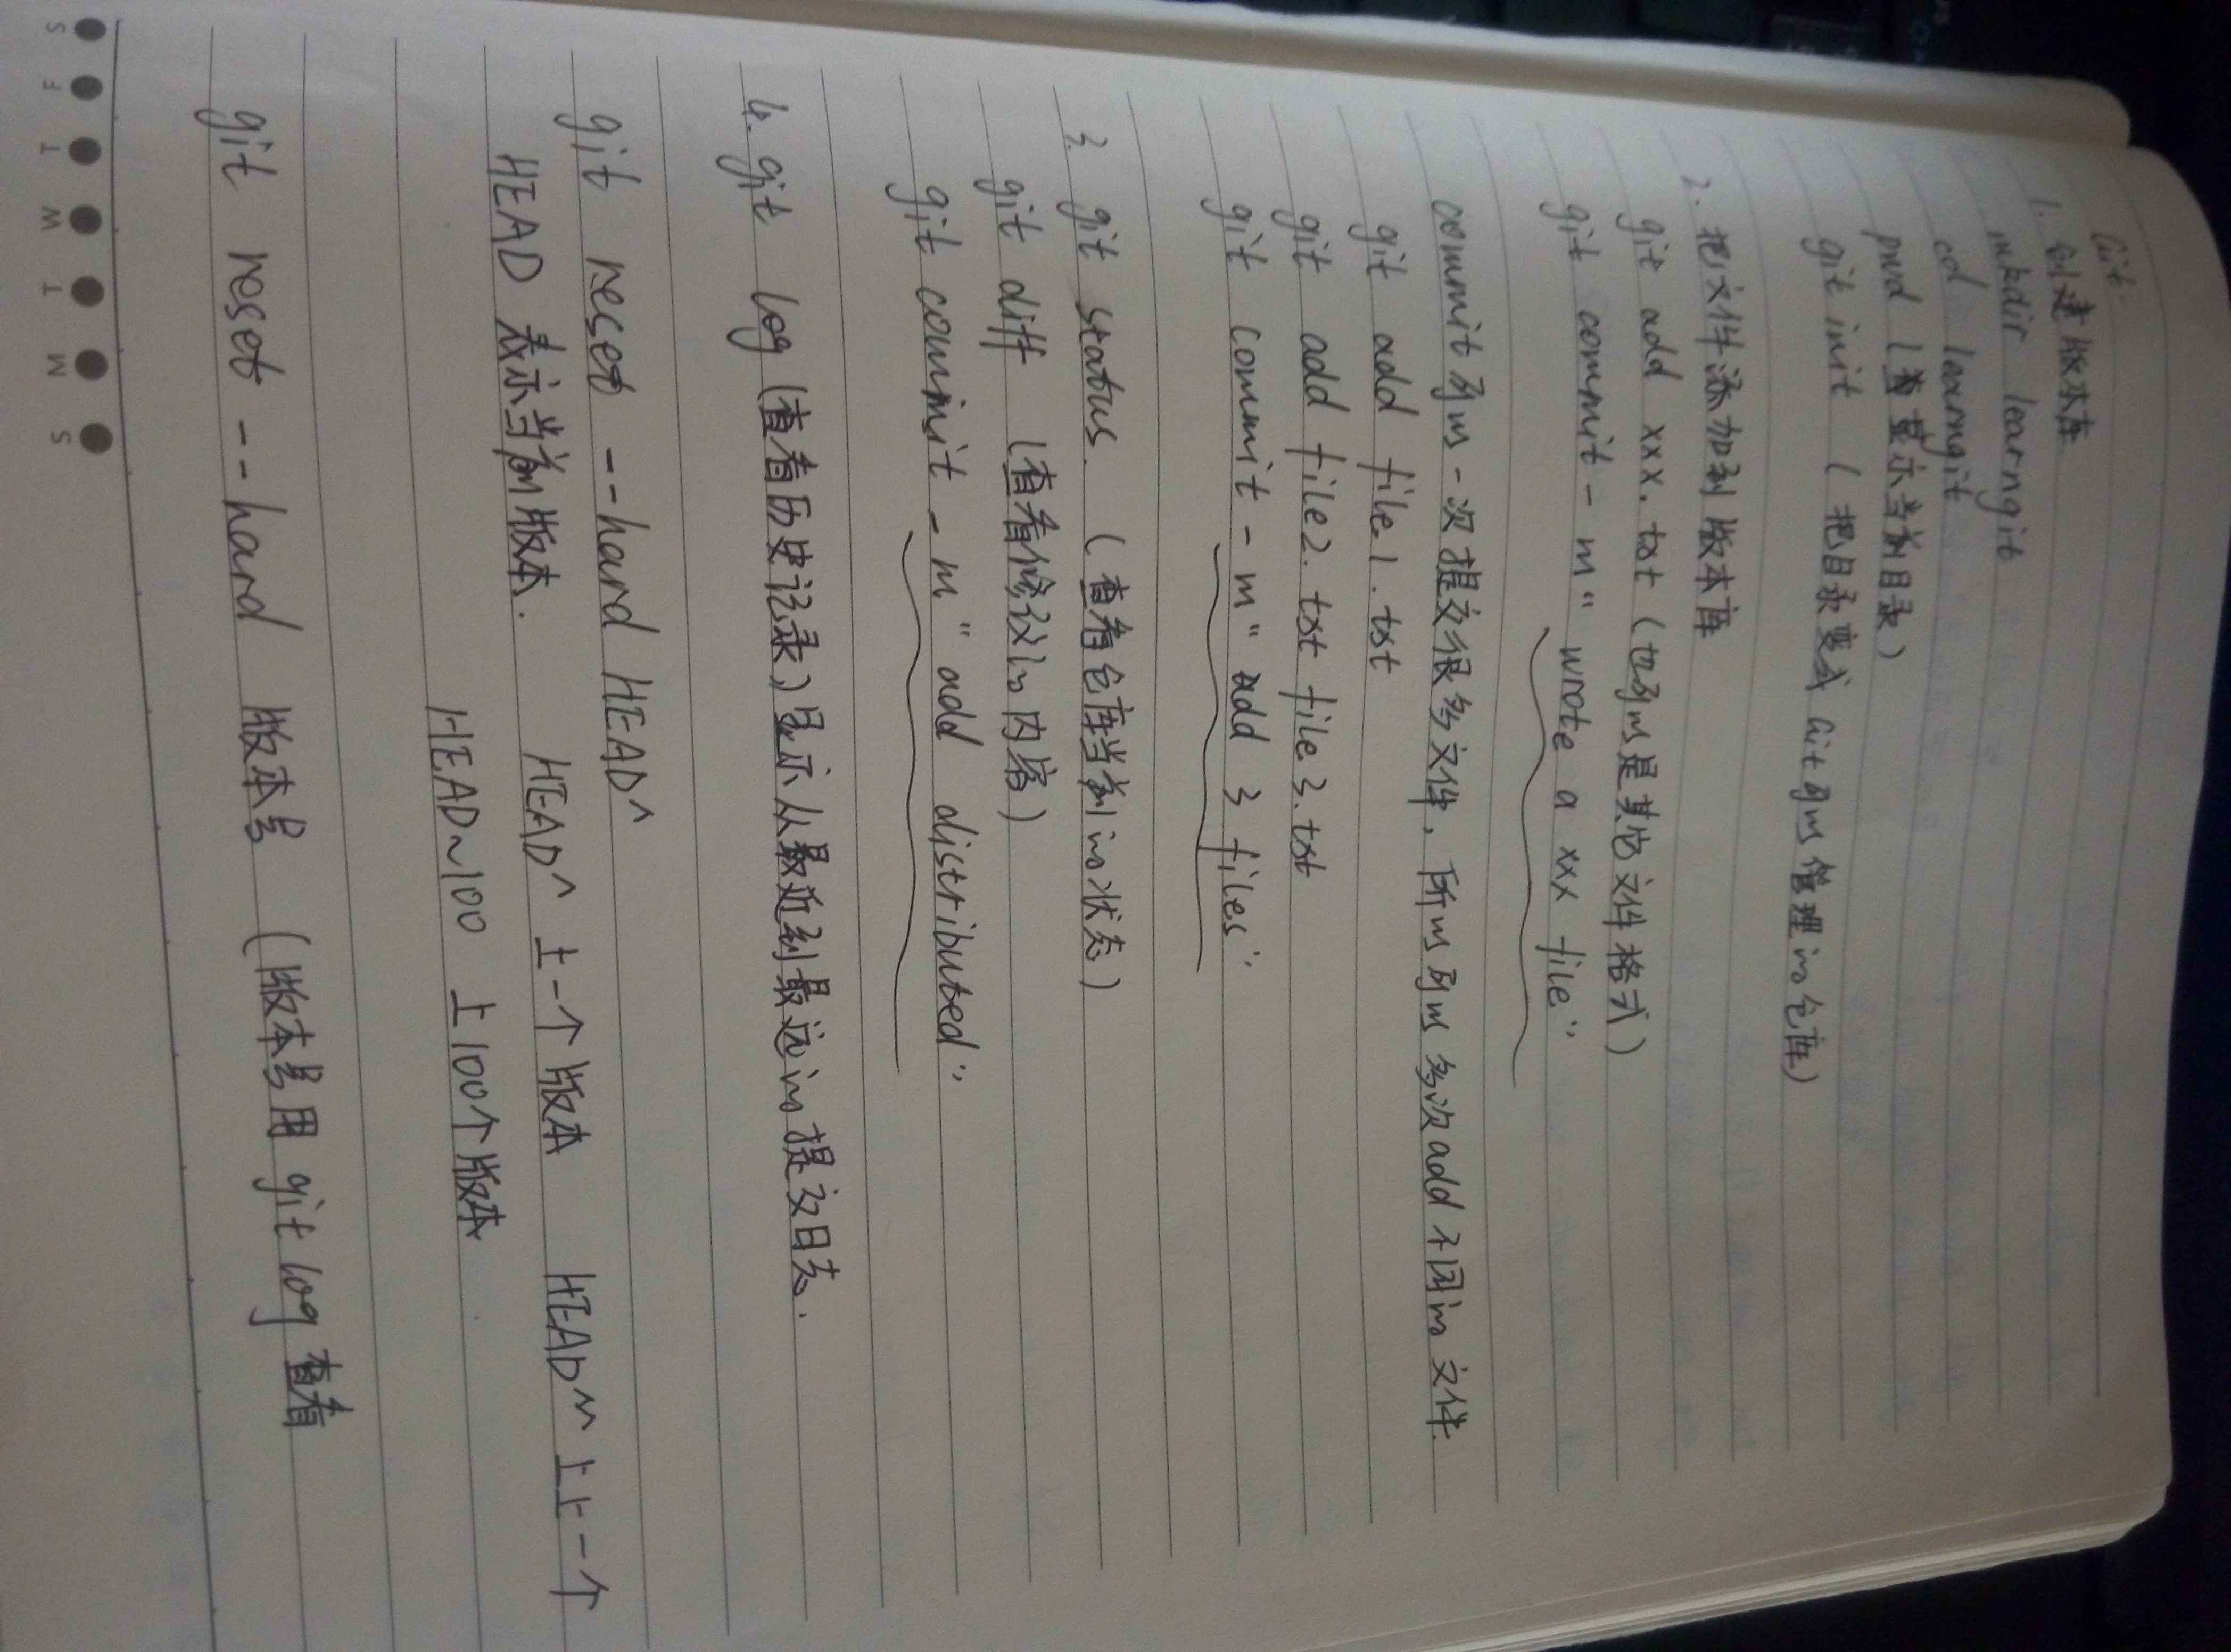 Git.
1. 创建版本库
mkdir learngit
cd learngit
pwd (显示当前目录)
git init (把目录变成Git可以管理的仓库)
2. 把文件添加到版本库
git add xxx.txt (也可以是其他文件格式)
git commit -m "wrote a xxx file"
commit可以一次提交很多文件，所以可以多次add不同的文件.
git add file1.txt
git add file2.txt file3.txt
git commit -m "add 3 files"
3. git status. (查看仓库当前的状态)
git diff (查看修改的内容)
git commit -m "add distributed"
4. git log (查看历史记录)显示从最近到最远的提交日志.
git reset --hard HEAD^
HEAD 表示当前版本. HEAD^ 上一个版本 HEAD^^ 上上一个
HEAD~100 上100个版本
git reset --hard 版本号 (版本号用 git log 查看
S M T W T F S